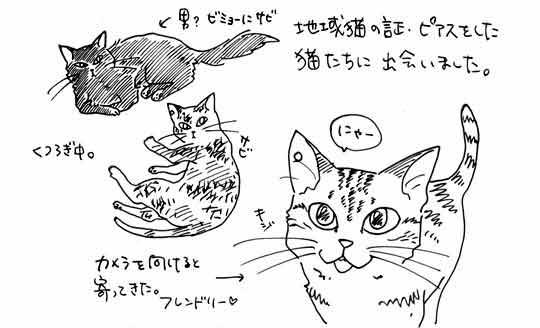 男? ビミョーにサビ
地域猫の証・ピアスをした
猫たちに出会いました。
くつろぎ中。
サビ
にゃー
キジ
カメラを向けると
寄ってきた。
フレンドリー♡